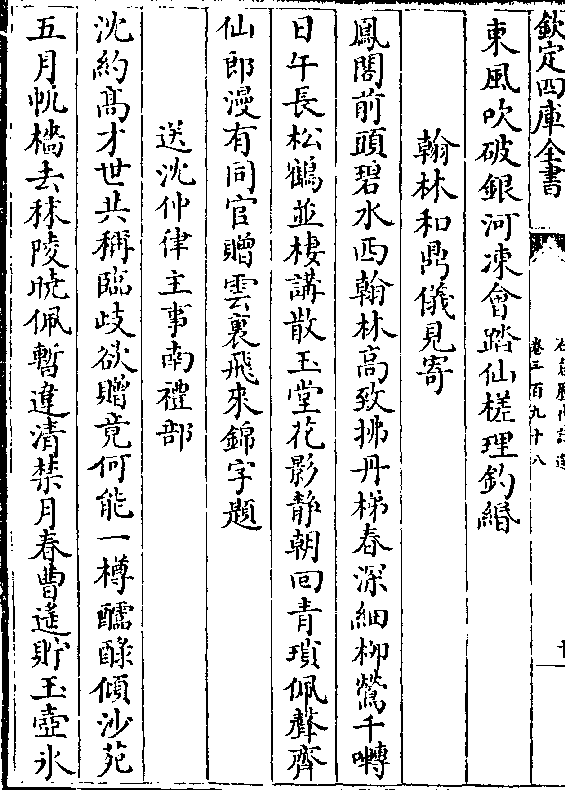 欽定四庫全書
卷三百九十八
東風吹破銀河凍會踏仙槎理釣緡
翰林和鼎儀見寄
鳳閣前頭碧水西翰林高致拂丹梯春深細柳鶯千囀
日午長松鶴並棲講散玉堂花影靜朝回青瑣佩聲齊
仙郎漫有同官贈雲裏飛來錦字題
送沈仲律主事南禮部
沈約髙才世共稱臨歧欲贈竟何能一樽醽醁傾沙苑
五月帆檣去秣陵曉佩暫違清禁月春曹遥貯玉壺氷